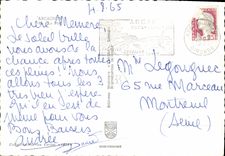 4 8 65
Chère Mémère
Le soleil brille
nous avons de la
chance après toutes
ces pluies. Nous
allons tous les 3
très bien j'espère
qu'il en est de
même pour vous
Bons Baisers
Andrée
65 Rue Marceau
Montreuil
(Seine)